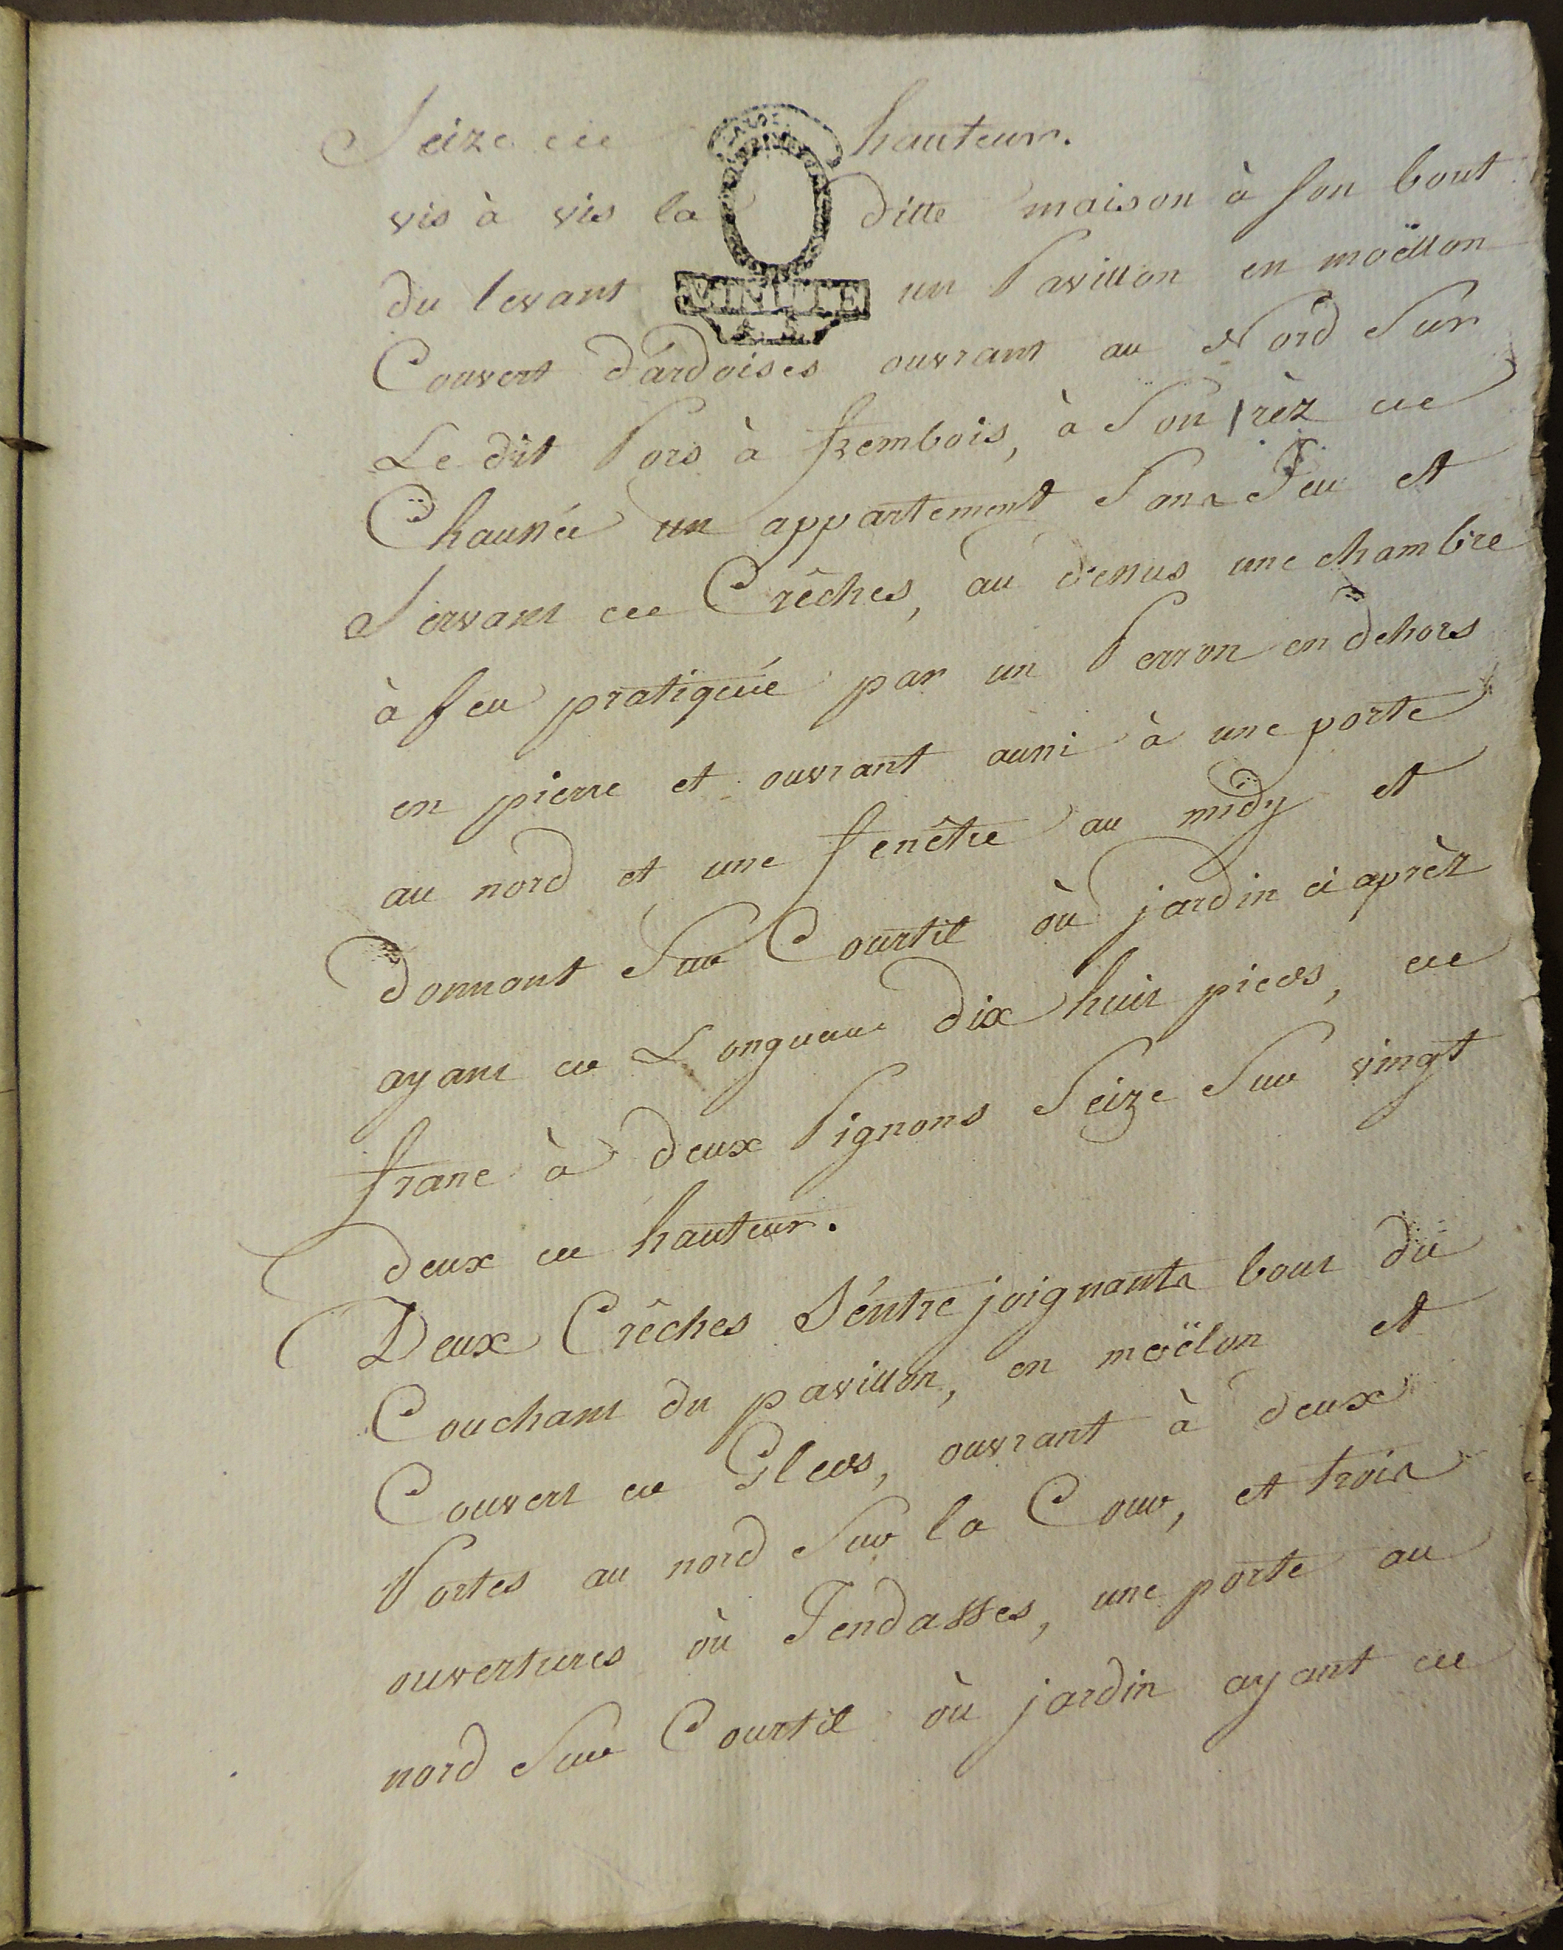 Seize de hauteur.
vis à vis la ditte maison à son bout
du levant un Pavillon en moëllon
Couvert d'ardoises ouvrant au Nord Sur
Le dit Pors à frembois, à Son rèz de
Chaussée un appartement Sans Feu et
Servant de Crêches, au dessus une chambre
à feu pratiquée par un Perron en dehors
en pierre et ouvrant aussi à une porte
au nord et une fenêtre au midy et
donnant Sur Courtil où jardin ci aprèz
ayant de Longueur dix huit pieds, de
franc à deux Pignons Seize Sur vingt
deux de hauteur.
Deux Crêches S'éntre joignants bout du
Couchant du pavillon, en moëlon et
Couvert de Gleds, ouvrant à deux
Portes au nord Sur la Cour, et trois
ouvertures où Fendasses, une porte au
nord Sur Courtil où jardin ayant de